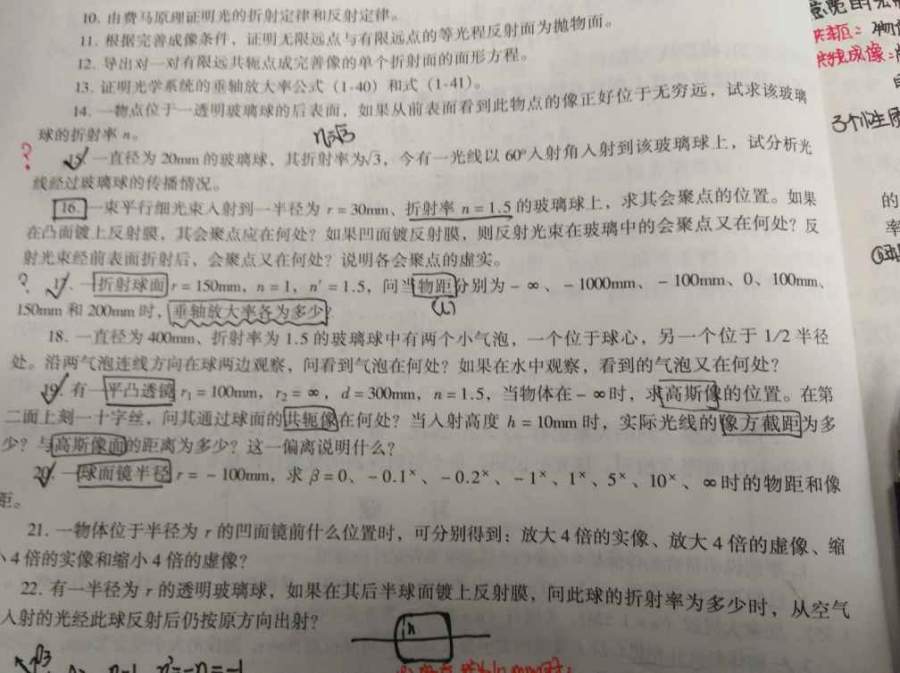 10. 由费马原理证明光的折射定律和反射定律。
11. 根据完善成像条件，证明无限远点与有限远点的等光程反射面为抛物面。
12. 导出对一对有限远共轭点成完善像的单个折射面的面形方程。
13. 证明光学系统的垂轴放大率公式（1-40）和式（1-41）。
14. 一物点位于一透明玻璃球的后表面，如果从前表面看到此物点的像正好位于无穷远，试求该玻璃
球的折射率 n。
n=√3
? 15. 一直径为 20mm 的玻璃球，其折射率为√3，今有一光线以 60°入射角入射到该玻璃球上，试分析光
线经过玻璃球的传播情况。
16. 一束平行细光束入射到一半径为 r = 30mm、折射率 n = 1.5 的玻璃球上，求其会聚点的位置。如果
在凸面镀上反射膜，其会聚点应在何处？如果凹面镀反射膜，则反射光束在玻璃中的会聚点又在何处？反
射光束经前表面折射后，会聚点又在何处？说明各会聚点的虚实。
? 17. 一折射球面 r = 150mm，n = 1，n′ = 1.5，问当物距分别为 - ∞、- 1000mm、- 100mm、0、100mm、
150mm 和 200mm 时，垂轴放大率各为多少？
(L)
18. 一直径为 400mm、折射率为 1.5 的玻璃球中有两个小气泡，一个位于球心，另一个位于 1/2 半径
处。沿两气泡连线方向在球两边观察，问看到气泡在何处？如果在水中观察，看到的气泡又在何处？
19. 有一平凸透镜 r₁ = 100mm，r₂ = ∞，d = 300mm，n = 1.5，当物体在 - ∞ 时，求高斯像的位置。在第
二面上刻一十字丝，问其通过球面的共轭像在何处？当入射高度 h = 10mm 时，实际光线的像方截距为多
少？与高斯像面的距离为多少？这一偏离说明什么？
20. 一球面镜半径 r = - 100mm，求 β = 0、- 0.1ˣ、- 0.2ˣ、- 1ˣ、1ˣ、5ˣ、10ˣ、∞ 时的物距和像
距。
21. 一物体位于半径为 r 的凹面镜前什么位置时，可分别得到：放大 4 倍的实像、放大 4 倍的虚像、缩
小 4 倍的实像和缩小 4 倍的虚像？
22. 有一半径为 r 的透明玻璃球，如果在其后半球面镀上反射膜，问此球的折射率为多少时，从空气
入射的光经此球反射后仍按原方向出射？